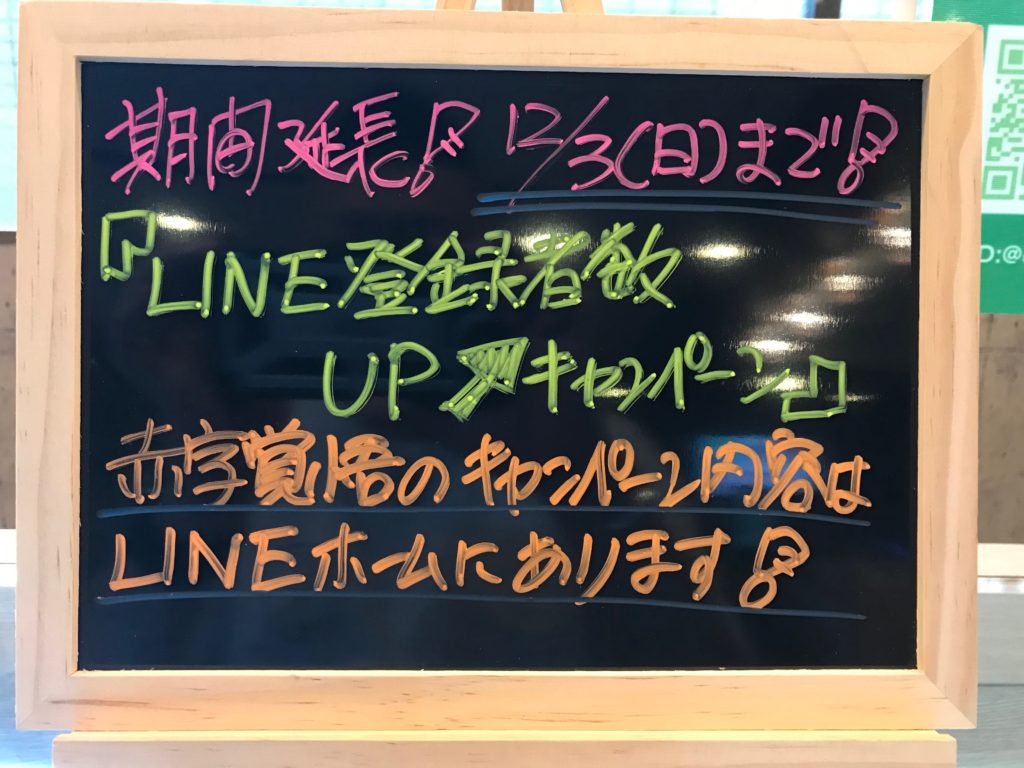 期間延長! 12/3(日)まで!
『LINE登録者数
UP↗キャンペーン』
赤字覚悟のキャンペーン内容は
LINEホームにあります!